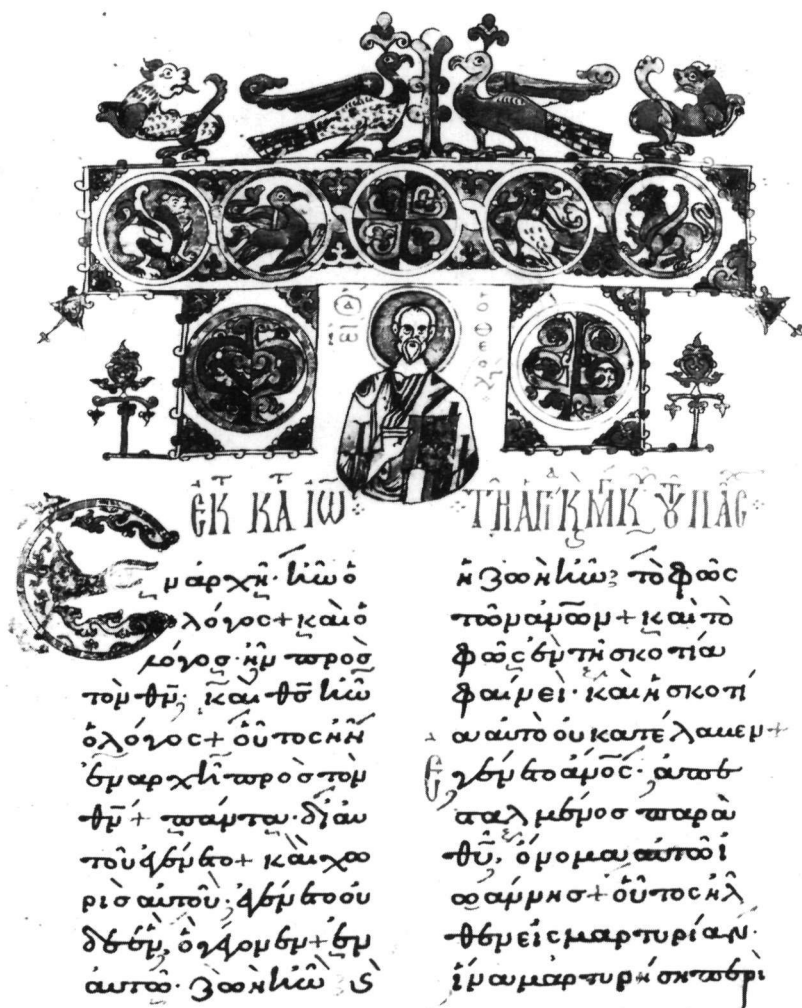 ἐκ τ κατ ἰω
Ἐν ἀρχῆ· ἦν ὁ
λόγος + καὶ ὁ
λόγος· ἦν πρὸς
τὸν θν̅· καὶ θς̅ ἦν
ὁ λόγος + οὗτος ἦν
ἐν ἀρχῆ πρὸς τὸν
θν̅ + πάντα· δι' αὐ
τοῦ ἐγένετο + καὶ χω
ρὶς αὐτοῦ· ἐγένετο οὐ
δὲ ἕν, ὃ γέγονεν + ἐν
αὐτῶ· ζωὴ ἦν ϗ
τῆ ἁγί ϗ μγ κυ τοῦ πάσ
ἡ ζωὴ ἦν, τὸ φῶς
τῶν ἀν̅ων + καὶ τὸ
φῶς ἐν τῆ σκοτία
φαίνει· καὶ ἡ σκοτί
α αὐτὸ οὐ κατέλαβεν +
Ἐγένετο ἄν̅ος· ἀπε
σταλμένος παρὰ
θυ̅, ὄνομα αὐτῶ ἰ
ωάννης + οὗτος ἦλ
θεν εἰς μαρτυρίαν·
ἵνα μαρτυρήση περὶ